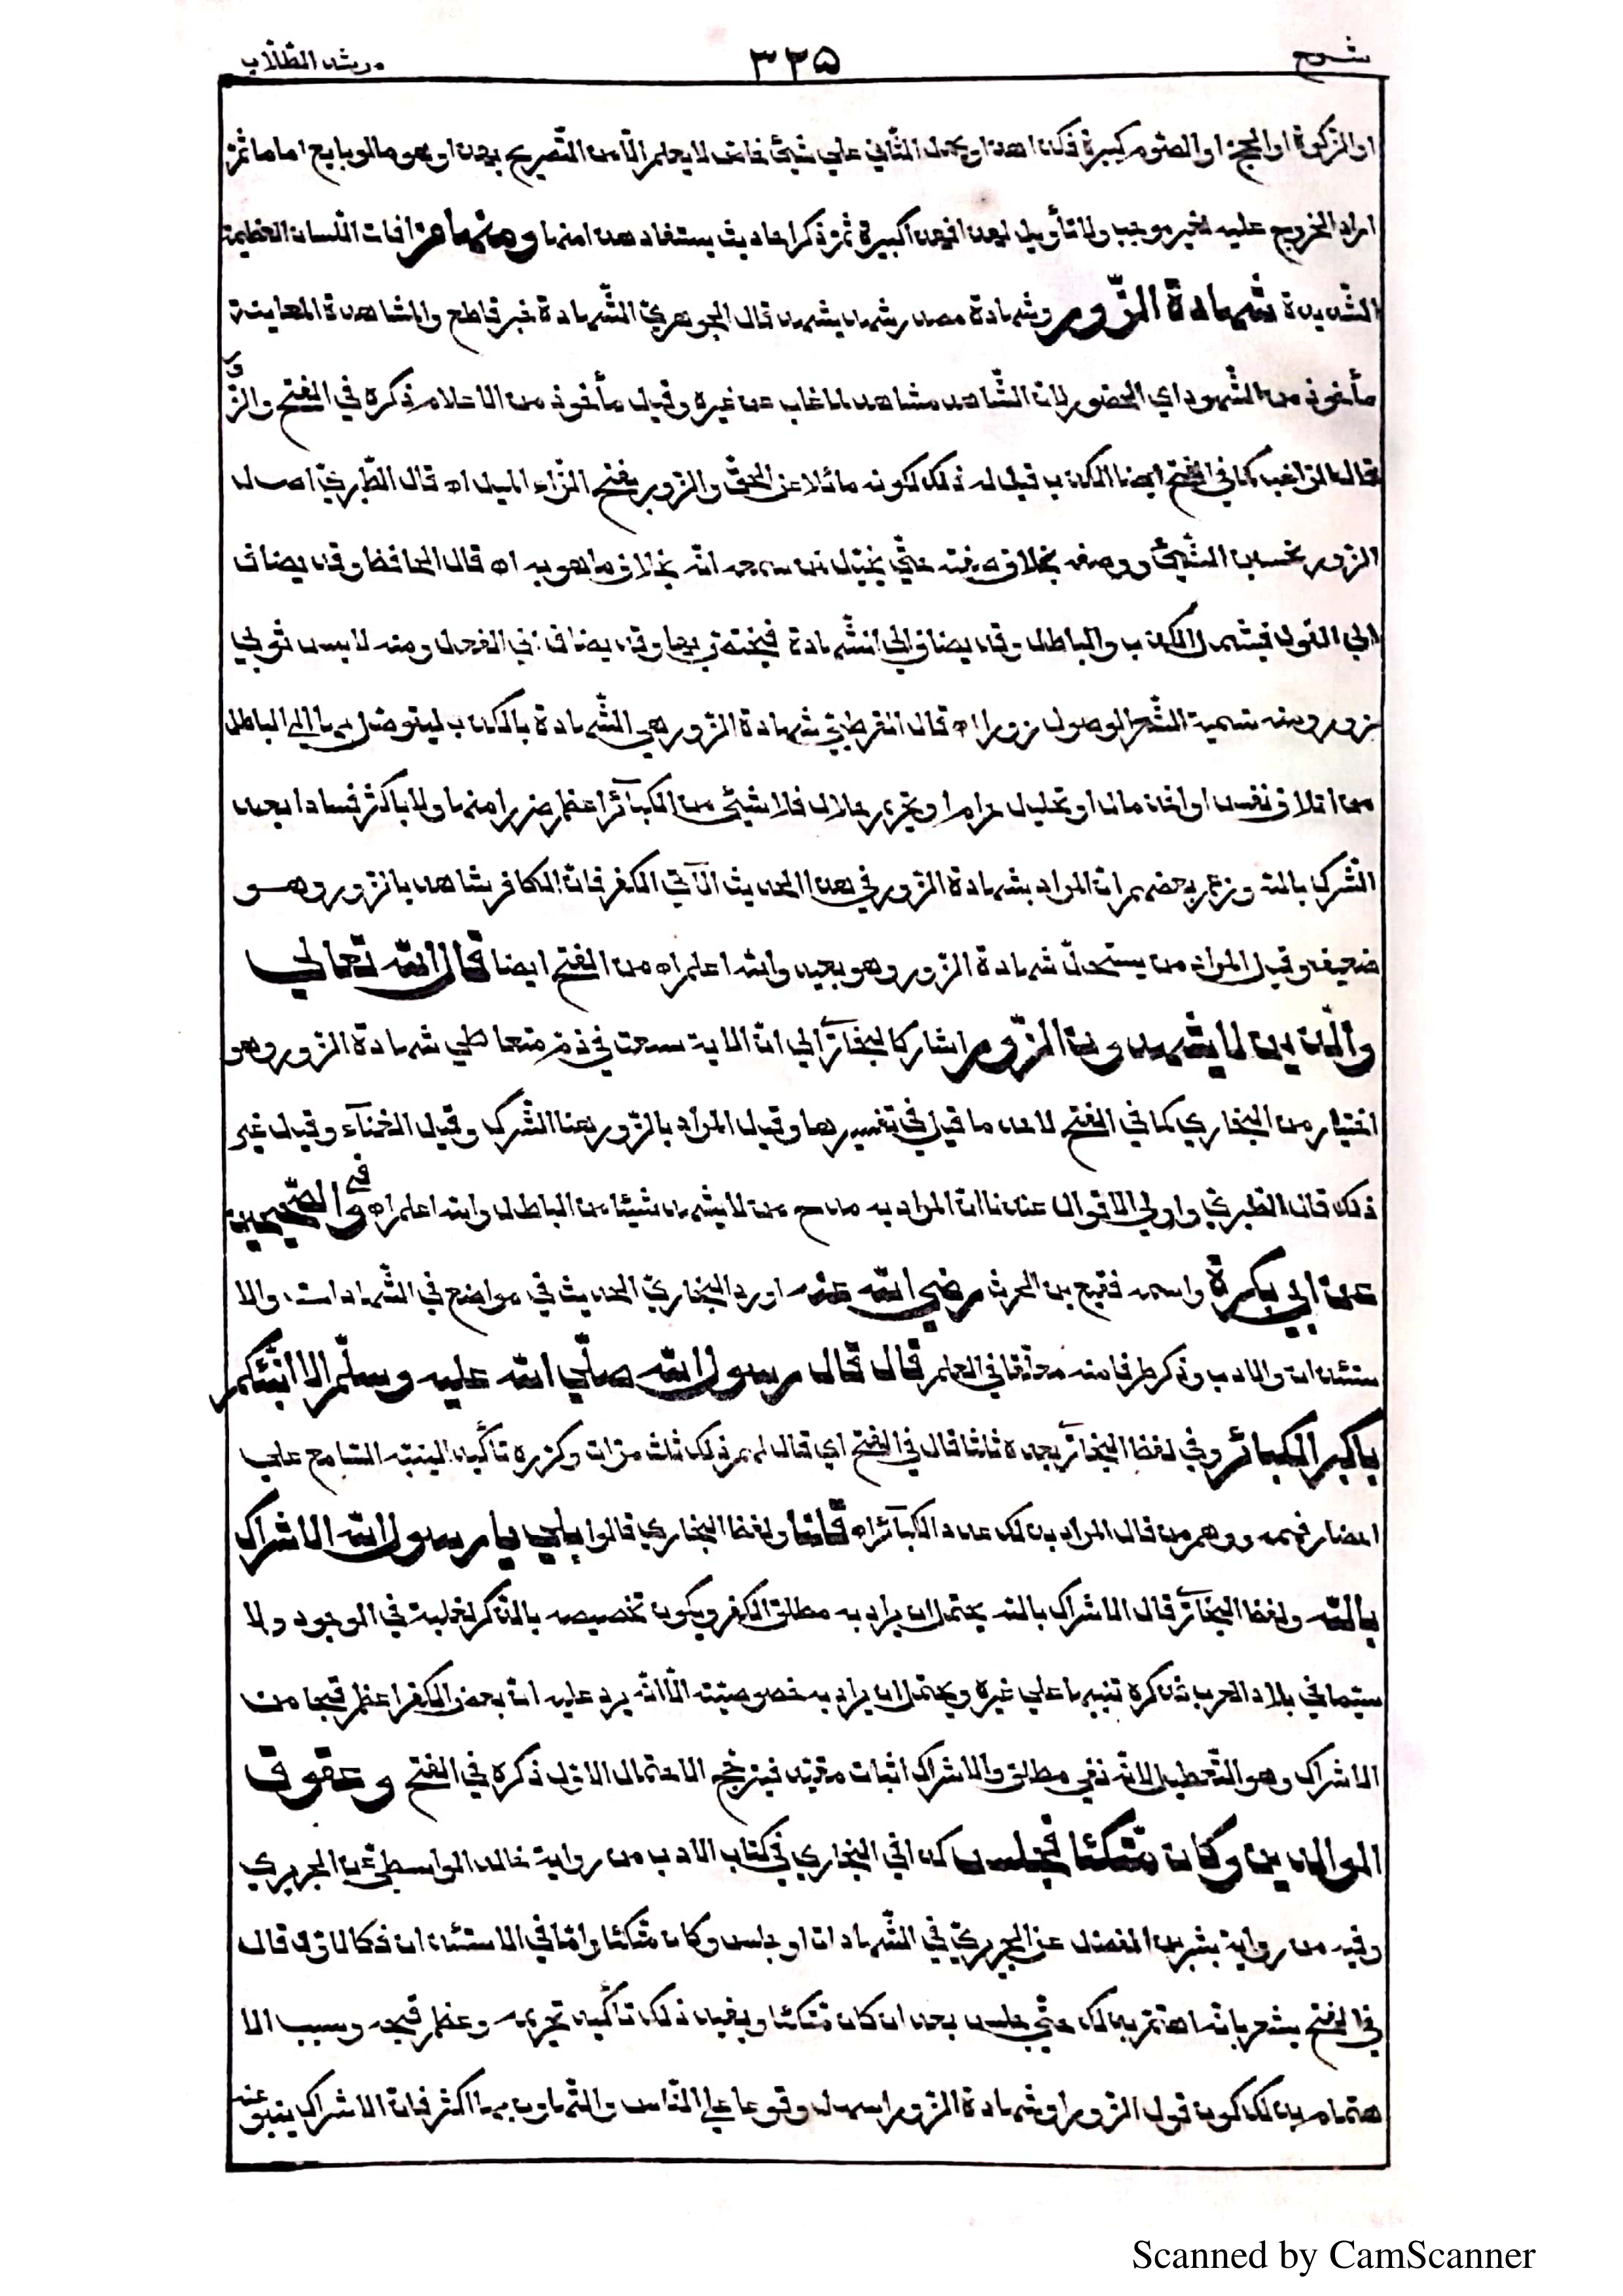 شرح
٣٢٥
مرشد الطّلاب
او الزكوة او الحج او الصّوم كبيرة فكذا هذا او يحمل الثّاني علي شيئ خاصّ لا يعلم الّا من التّصريح بهذا وهو ما لو بايع اماما ثمّ
اراد الخروج عليه لغير موجب ولا تأويل فهذا فيهن اكبيرة ثمّ ذكر احاديث يستفاد هذا منها ومنها من افات اللّسان العظيمة
الشّديدة شهادة الزّور وشهادة مصدر شهد يشهد قال الجوهريّ الشّهادة خبر قاطع والمشاهدة المعاينة
مأخوذ من الشّهود اي الحضور لانّ الشّاهد مشاهد لما غاب عن غيره وقيل مأخوذ من الاعلام ذكره في الفتح والزّور
قال الرّاغب كما في الفتح ايضا الكذب قيل له ذلك لكونه مائلا عن الحقّ والزور بفتح الزّاء الميل اه قال الطّبريّ اصل
الزور تحسين الشّيئ ووصفه بخلاف صفته حتّي يخيّل لمن سمعه انّه بخلاف ما هو به اه قال الحافظ وقد يضاف
الي القول فيشمل الكذب والباطل وقد يضاف الي الشّهادة فيختصّ بها وقد يضاف الي الفعل ومنه لابس ثوبي
زور ومنه تسمية الشّعر الموصول زورا اه قال القرطبيّ شهادة الزّور هي الشّهادة بالكذب ليتوصّل بها الي الباطل
من اتلاف نفس او اخذ مال او تحليل حرام او تحريم حلال فلا شيئ من الكبآئر اعظم ضررا منها ولا باكثر فسادا بعد
الشّرك بالله وزعم بعضهم انّ المراد بشهادة الزور في هذا الحديث الآتي الكفر فانّ الكافر شاهد بالزّور وهو
ضعيف وقيل المراد من يستحلّ شهادة الزور وهو بعيد والله اعلم اه من الفتح ايضا قال الله تعالي
والّذين لا يشهدون الزّور اشار كالبخاريّ الي انّ الاية سيقت في ذمّ متعاطي شهادة الزّور وهو
اختيار من البخاري كما في الفتح لاحد ما قيل في تفسيرها وقيل المراد بالزّور هنا الشّرك وقيل الغنآء وقيل غير
ذلك قال الطّبريّ واولي الاقوال عندنا انّ المراد به مدح من لا يشهد شيئا من الباطل والله اعلم اه وفي الصّحيحين
عن ابي بكرة واسمه نفيع بن الحرث رضي الله عنه اورد البخاريّ الحديث في مواضع في الشّهادات والا
ستئذان والادب وذكر طرفا منه معلّقا في العلم قال قال رسول الله صلّي الله عليه وسلّم الا انبّئكم
باكبر الكبائر وفي لفظ البخاريّ بعده ثلاثا قال في الفتح اي قال لهم ذلك ثلاث مرّات وكرّره تأكيدا لينتبه السّامع علي
احضار فهمه ووهم من قال المراد بذلك عدد الكبآئر اه قلنا ولفظ البخاري قالوا بلي يا رسول الله الاشراك
بالله ولفظ البخاريّ قال الاشراك بالله يحتمل ان يراد به مطلق الكفر ويكون تخصيصه بالذّكر لغلبته في الوجود ولا
سيّما في بلاد العرب فذكره تنبيها علي غيره ويحتمل ان يراد به خصوصيّته الّا انّه يرد عليه انّ بعض الكفر اعظم قبحا من
الاشراك وهو التّعطيل لانّه نفي مطلق والاشراك اثبات مقيّد فيترجّح الاحتمال الاوّل ذكره في الفتح وعقوق
الوالدين وكان متّكئا فجلس كذا في البخاري في كتاب الادب من رواية خالد الواسطيّ عن الجريري
وفيه من رواية بشر بن المفضل عن الجريريّ في الشّهادات وجلس وكان متّكئا وامّا في الاستئذان فكالاوّل قال
في الفتح يشعر بانّه اهتمّ بذلك حتّي جلس بعد ان كان متّكئا ويفيد ذلك تأكيد تحريمه وعظم قبحه وسبب الا
هتمام بذلك كون قول الزّور او شهادة الزّور اسهل وقوعا علي النّاس والتّهاون بها اكثر فانّ الاشراك ينبو عنه
Scanned by CamScanner